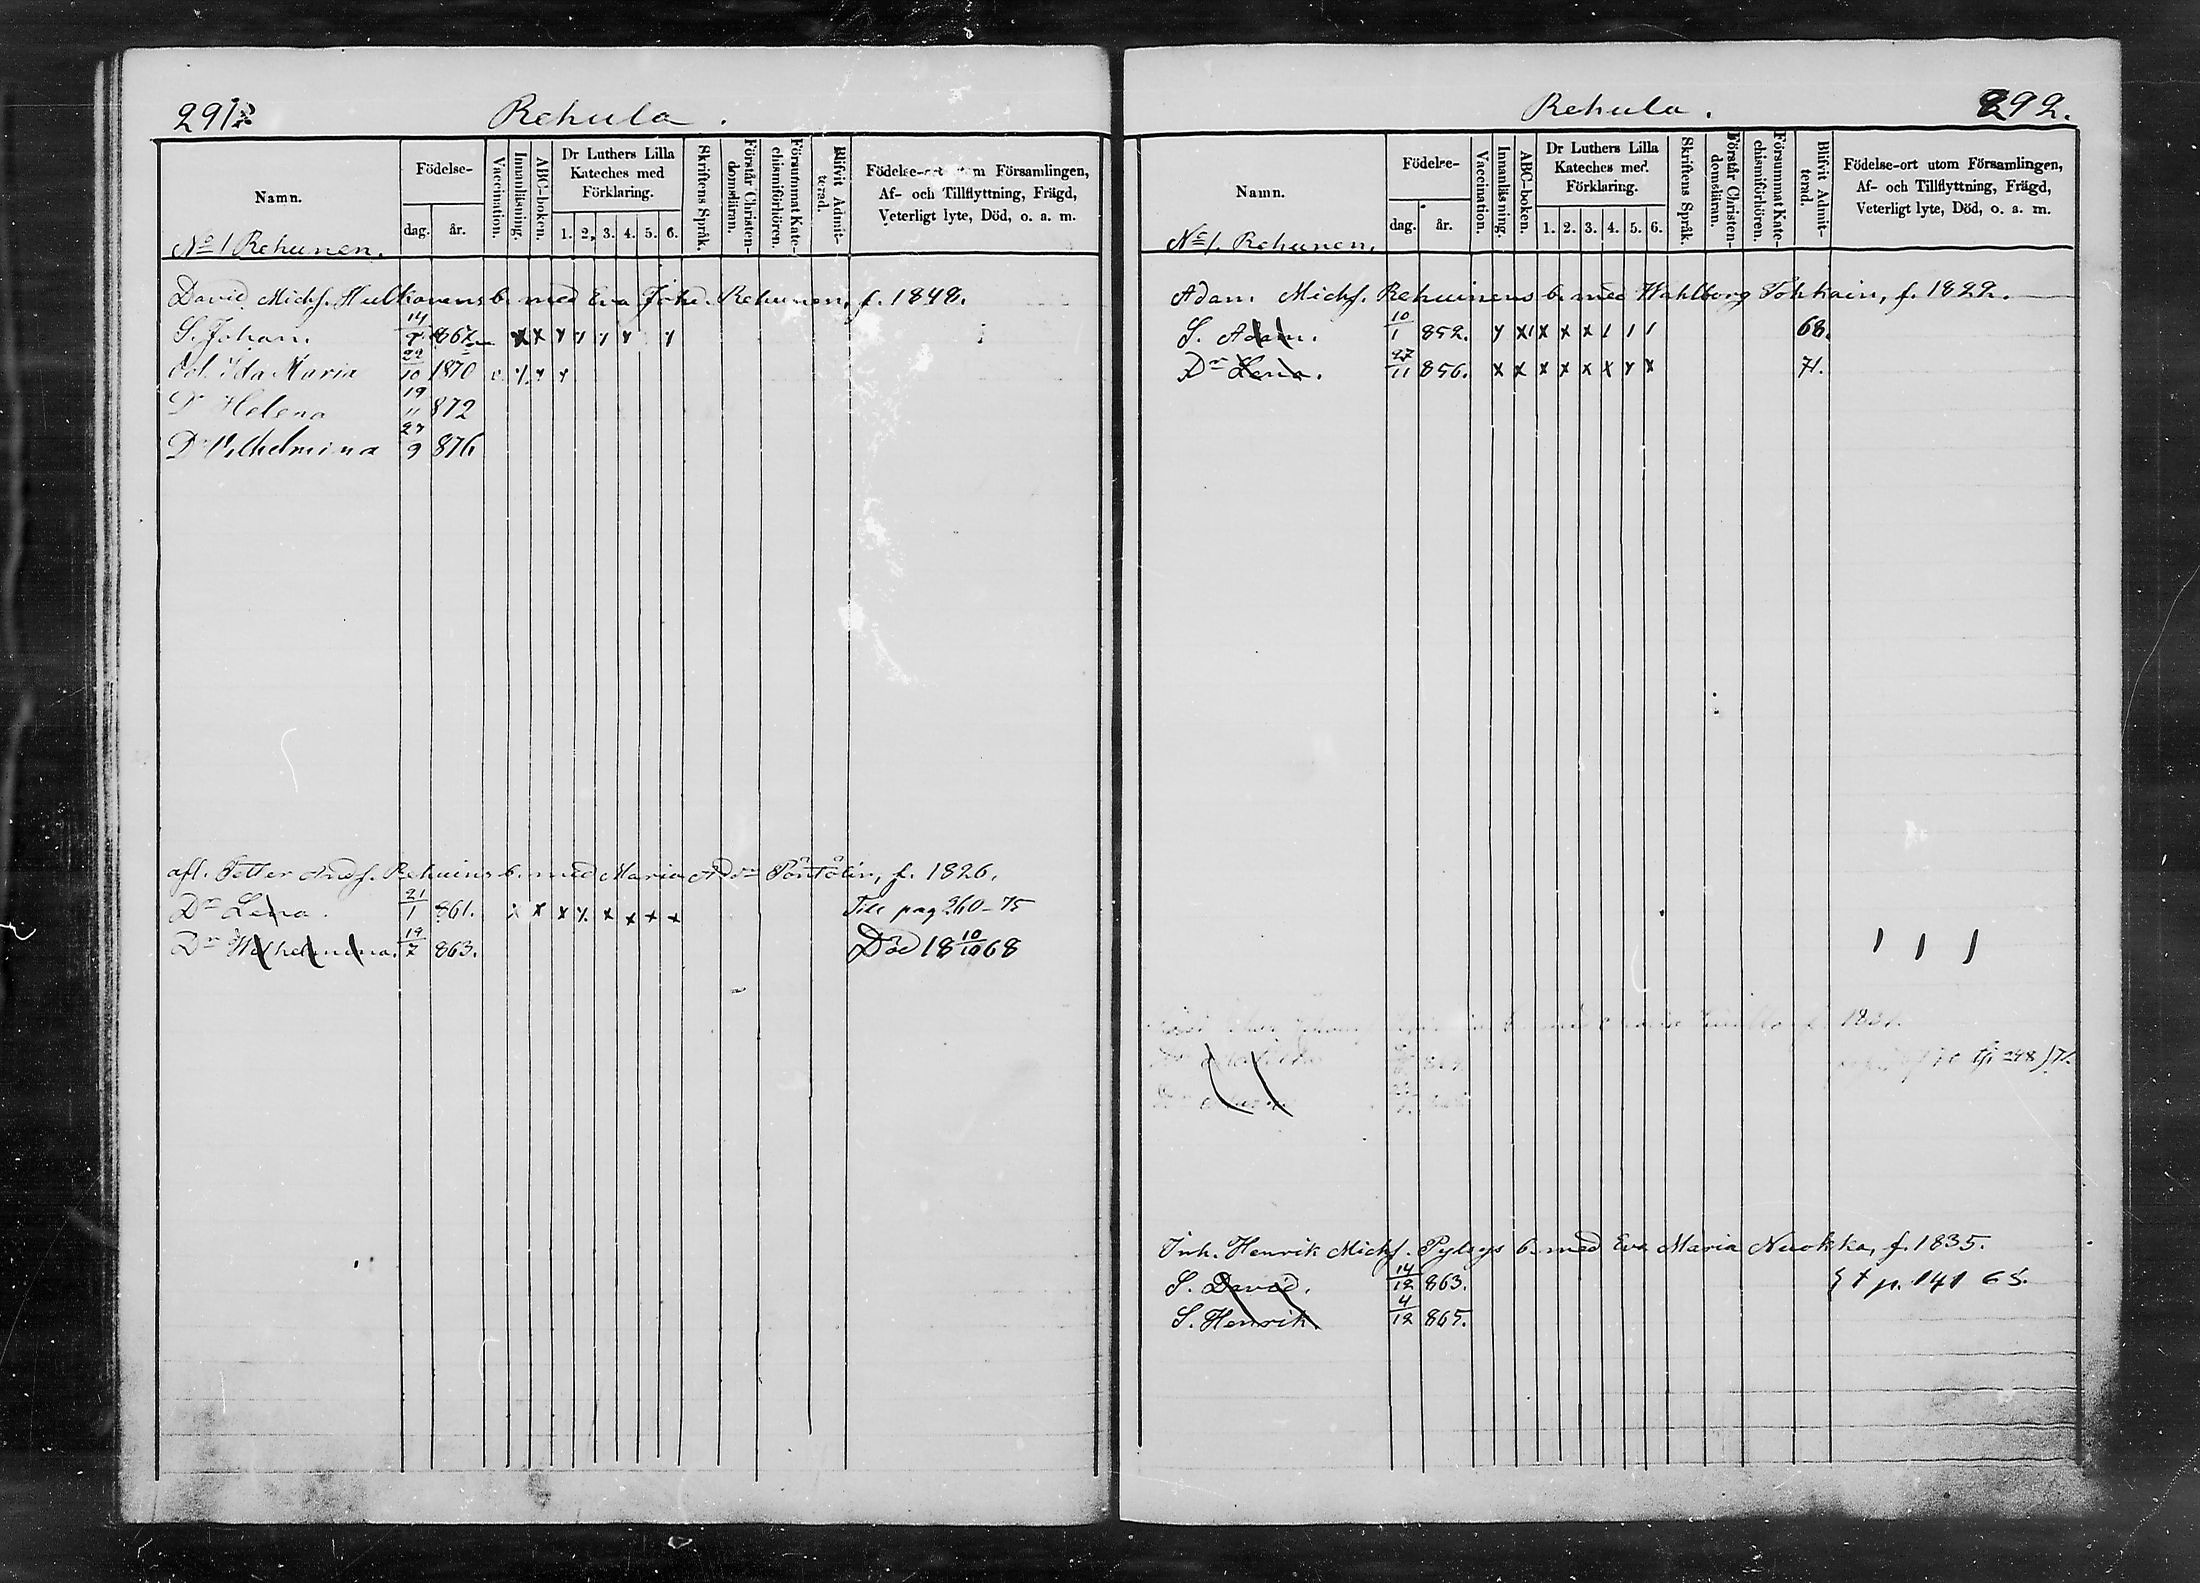 291
Rehula.
Namn.
Födelse-
dag. år.
Vaccination.
Innanläsning.
ABC-boken.
Dr Luthers Lilla Kateches med Förklaring.
1. 2. 3. 4. 5. 6.
Skriftens Språk.
Förstår Christendomsläran.
Försummat Katechismiförhören.
Blifvit Admitterad.
Födelse-ort utom Församlingen,
Af- och Tillflyttning, Frägd,
Veterligt lyte, Död, o. a. m.
No 1 Rehunen.
David Michs. Hulkkonens b. med Eva Johd. Rehunen, f. 1848.
S. Johan. 867 x x y y y y y
Ida Maria 22/10 1870
Dr Helena 19/11 872
Dr Vilhelmina 27/9 876
afl. Petter Ands. Rehuins b. med Maria Adr Pöntölin, f. 1826.
Dr Lena. 21/1 861. x x x x x x x x Till pag 260-75
Dr Wilhelmina. 19/7 863. Död 18 10/10 68
Rehula.
292.
Namn.
Födelse-
dag. år.
Vaccination.
Innanläsning.
ABC-boken.
Dr Luthers Lilla Kateches med Förklaring.
1. 2. 3. 4. 5. 6.
Skriftens Språk.
Förstår Christendomsläran.
Försummat Katechismiförhören.
Blifvit Admitterad.
Födelse-ort utom Församlingen,
Af- och Tillflyttning, Frägd,
Veterligt lyte, Död, o. a. m.
No 1. Rehunen.
Adam Michs. Rehuinens b. med Wahlborg Tohkain, f. 1822.
S. Adam. 10/1 852. y x1 x x x 1 1 1 68.
Dr Lena. 27/11 856. x x x x x x x x 71.
Inh. Henrik Michs. Pylsys b. med Eva Maria Nuokka, f. 1835.
S. David. 14/12 863. p. 141 68.
S. Henrik. 4/12 865.